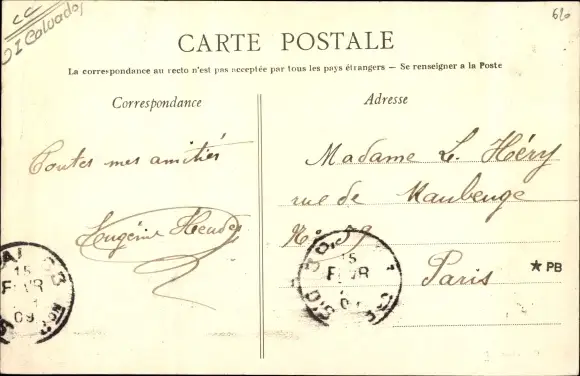 Calvados
620
CARTE POSTALE
La correspondance au recto n'est pas acceptée par tous les pays étrangers — Se renseigner a la Poste
Correspondance
Adresse
Toutes mes amitiés
Eugénie
Madame L. Héry
rue de Maubeuge
No 59
Paris
15
FEVR
09
15
FEVR
★ PB